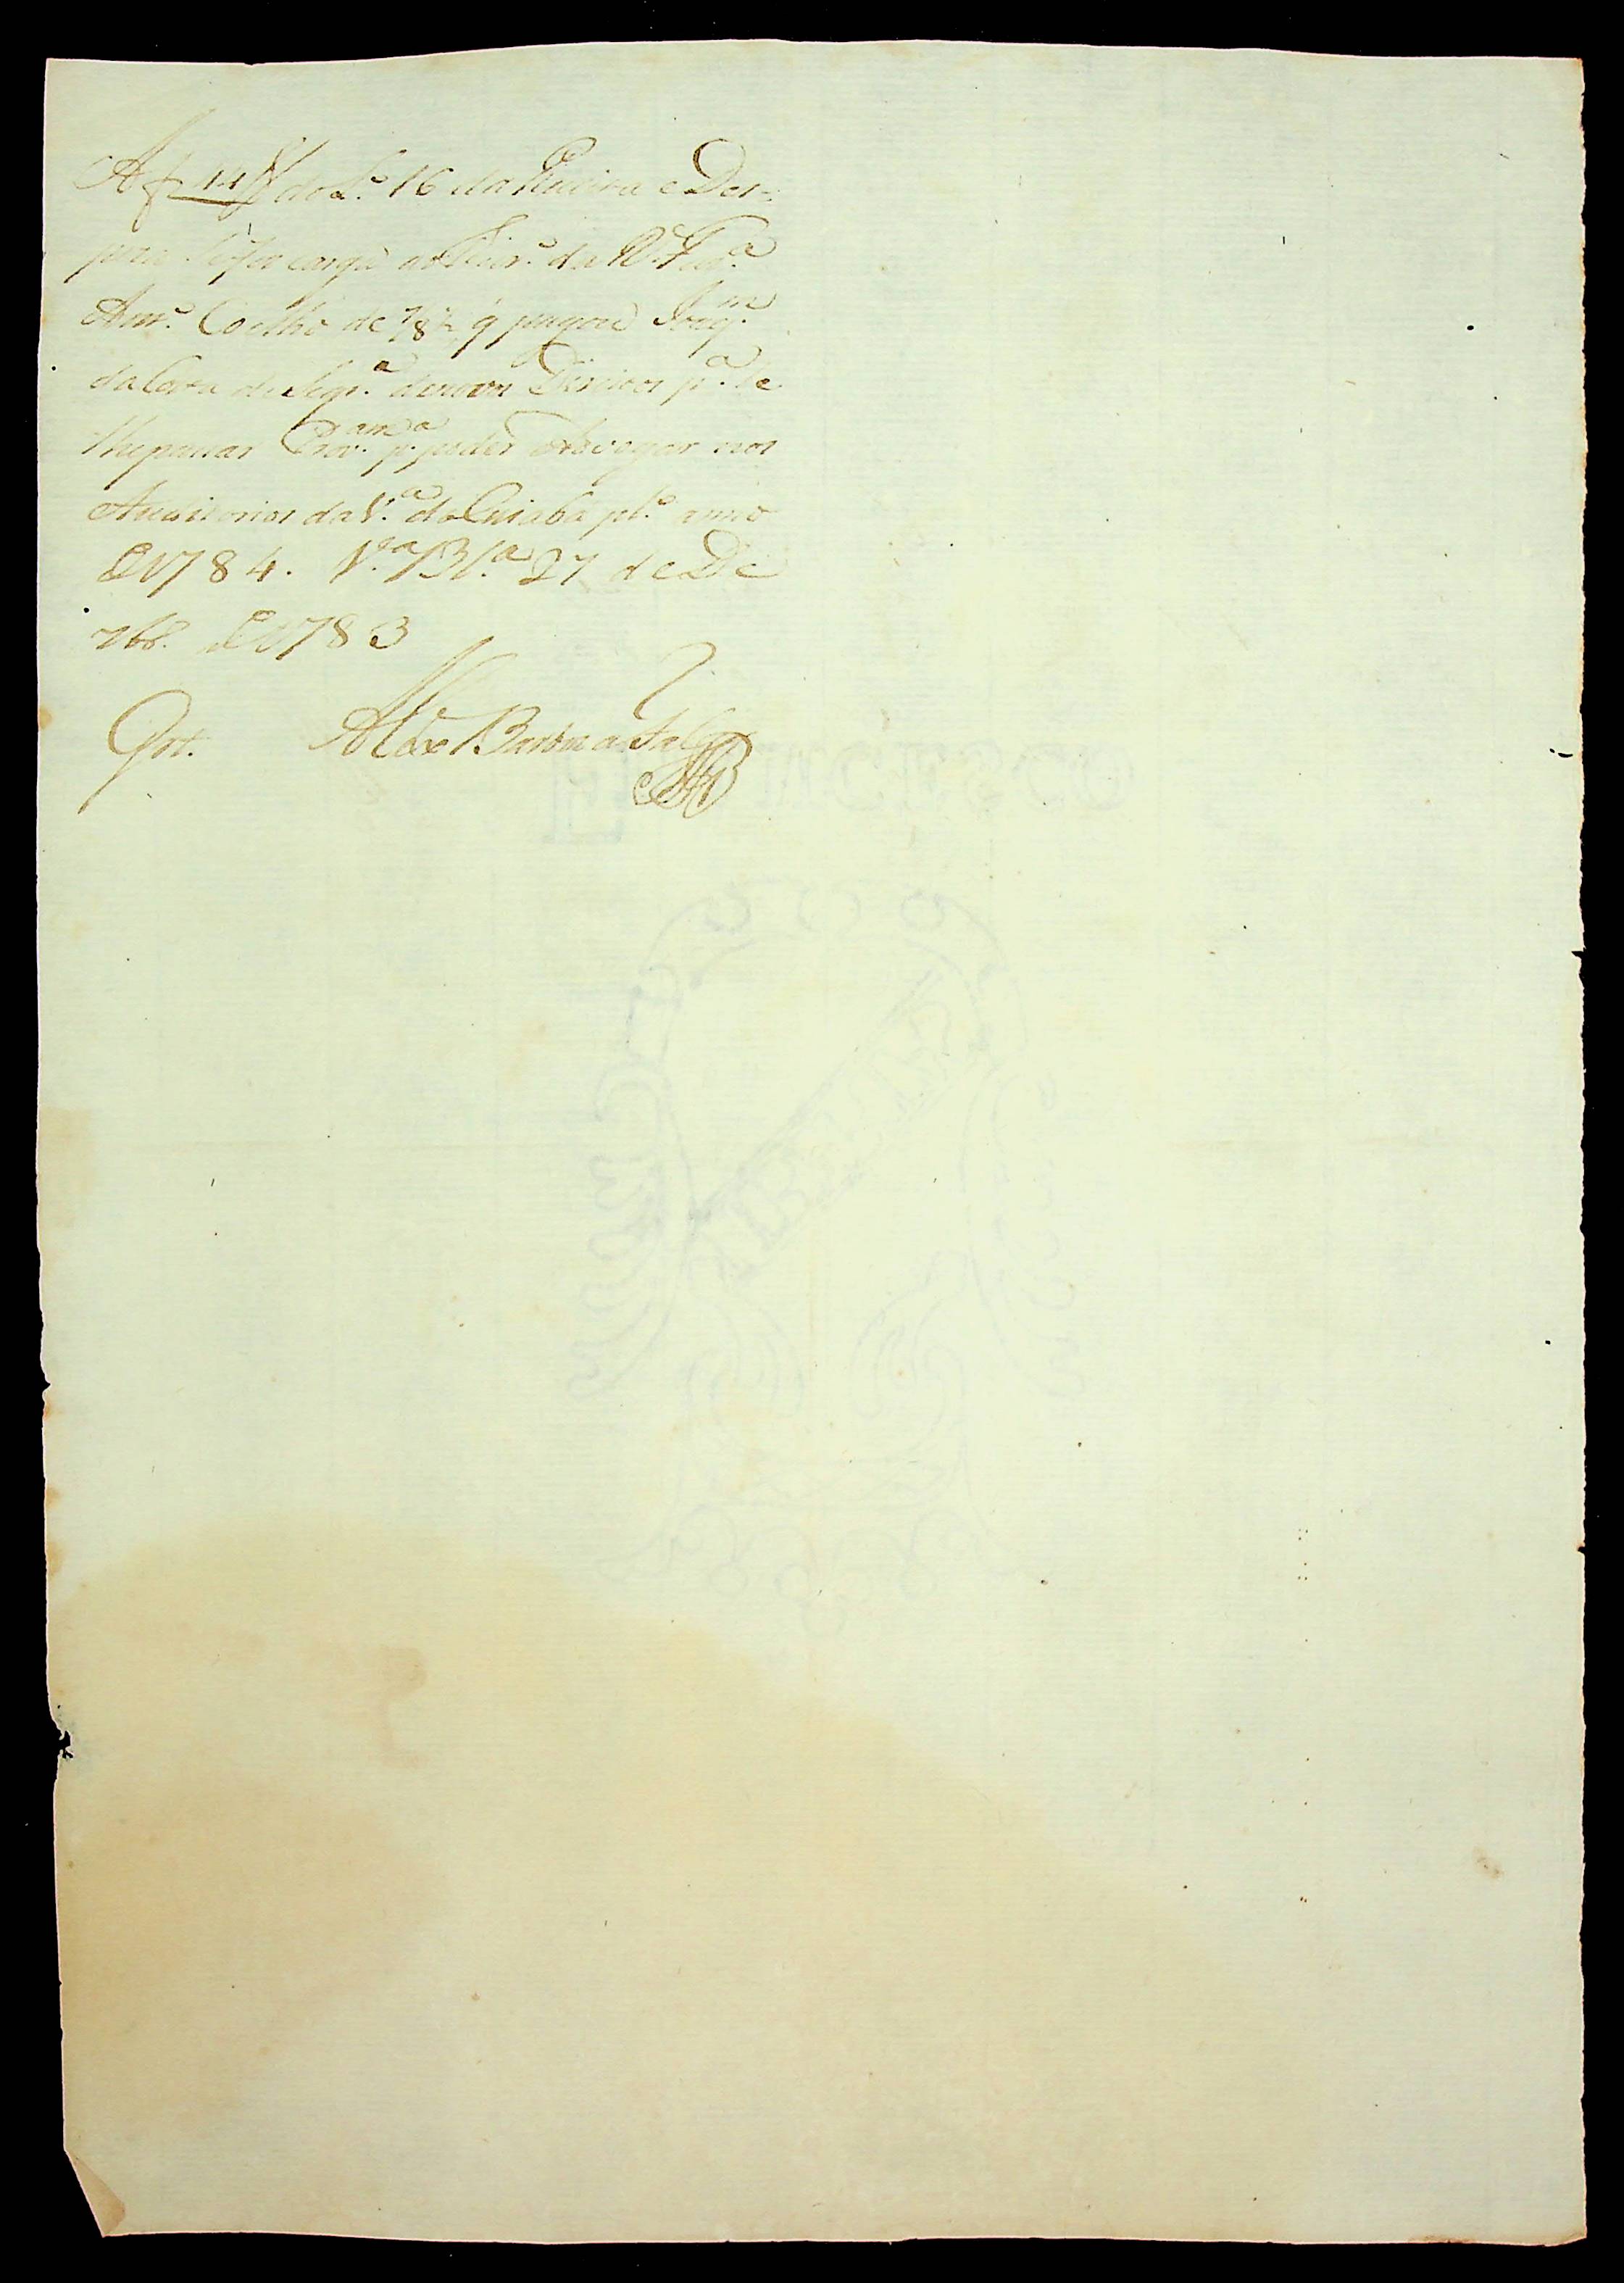 A f. 44 V do L.º 16 da Receita e Des-
peza se fez carga ao Tizr.º da R. Faz.ª
Ant.º Coelho de 7/8 1/2 q̃ pagou Joaq.m
da Costa de Seqr.ª de novos Direitos p.ª se
lhe passar Prov.am p.ª poder Advogar nos
Auditorios da V.ª do Cuiabá pl.º anno
de 1784. V.ª B.la 27 de De
zbr.º de 1783
Grt. Alx.e Barboza